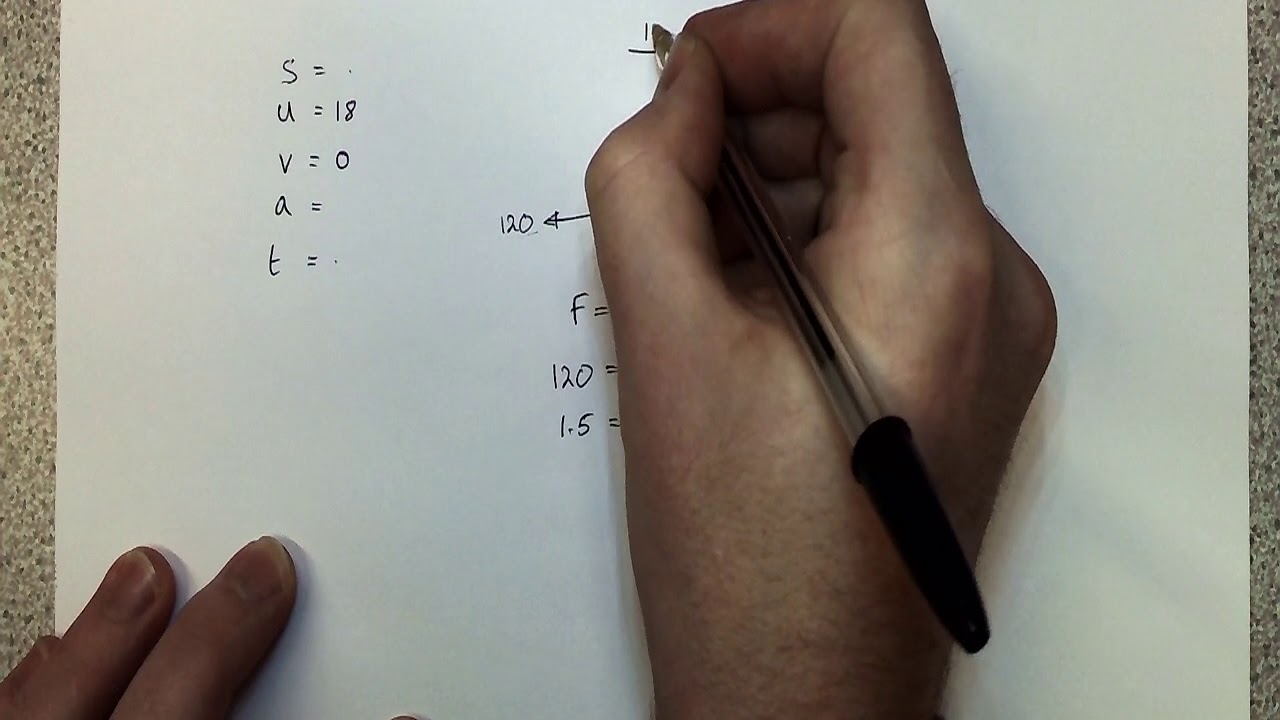 S = .
u = 18
v = 0
a =
t = .
1
120
F =
120 =
1.5 =